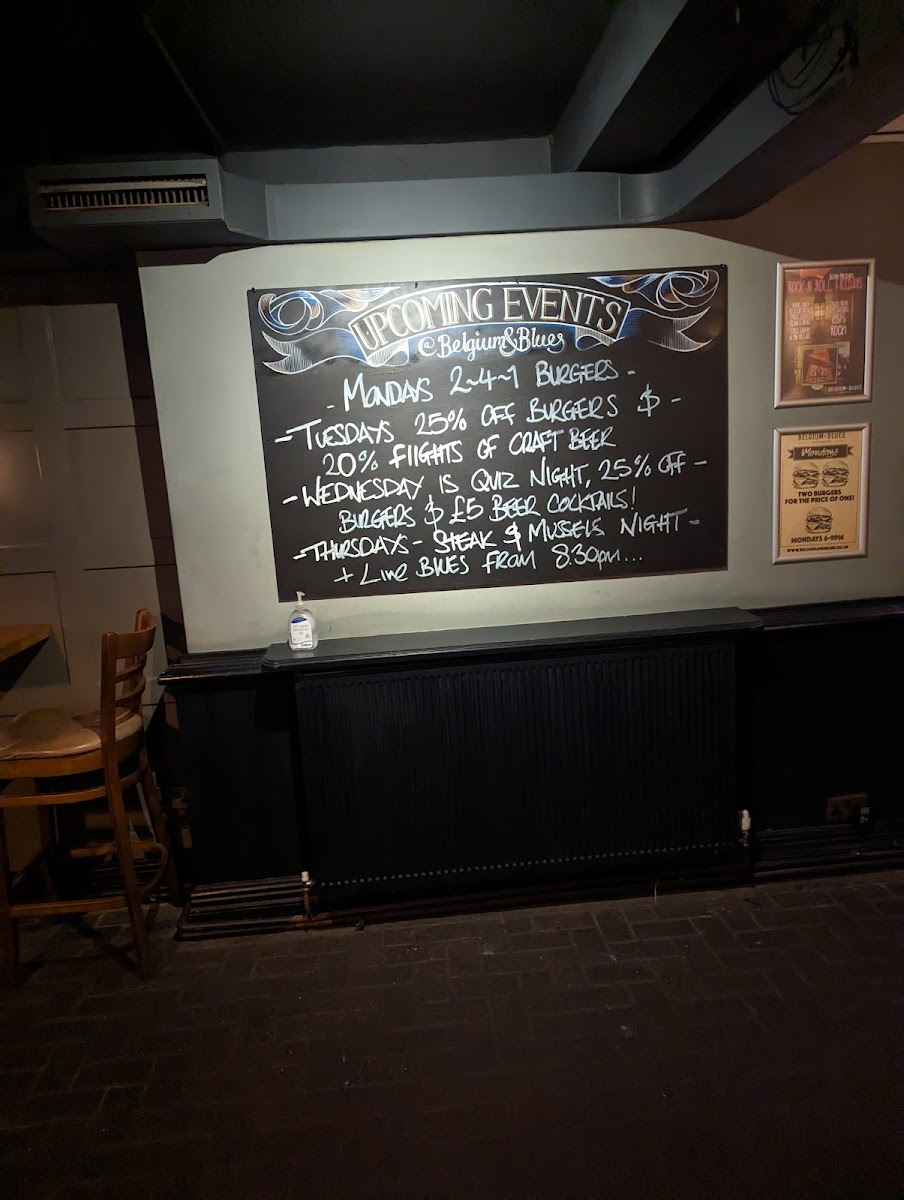 UPCOMING EVENTS
@Belgium&Blues
- MONDAYS 2-4-1 BURGERS -
- TUESDAYS 25% OFF BURGERS $ -
20% FlIGHTS OF CRAFT BEER
- WEDNESDAY IS QUIZ NIGHT, 25% OFF -
BURGERS $ £5 BEER COCKTAILS!
- THURSDAYS - STEAK $ MUSSELS NIGHT -
+ LIVE BLUES FROM 8.30pm...
ROCK N ROLL FRIDAYS
BELGIUM & BLUES
BELGIUM & BLUES
Mondays
TWO BURGERS
FOR THE PRICE OF ONE!
MONDAYS 6-9PM